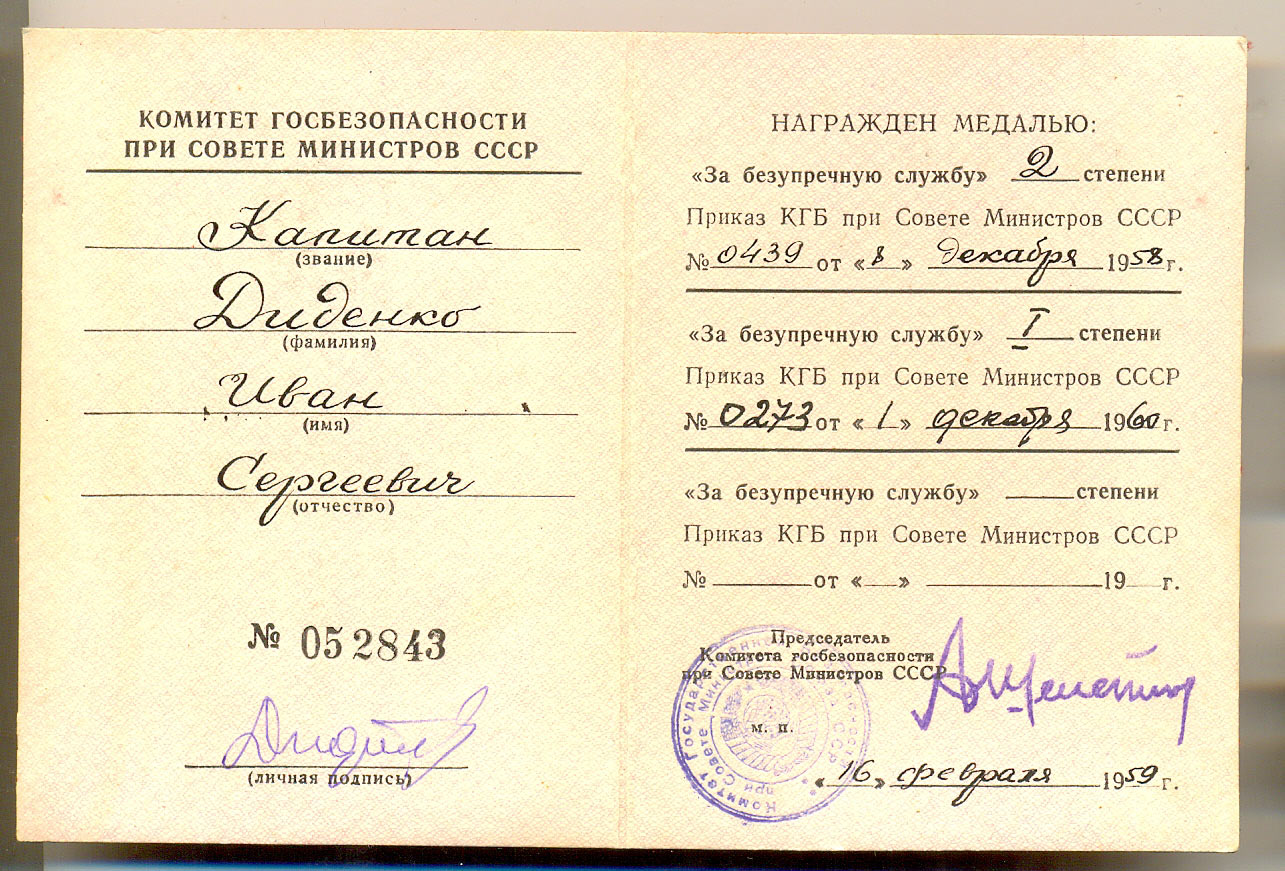 КОМИТЕТ ГОСБЕЗОПАСНОСТИ
ПРИ СОВЕТЕ МИНИСТРОВ СССР
Капитан
(звание)
Диденко
(фамилия)
Иван
(имя)
Сергеевич
(отчество)
№ 052843
(личная подпись)
НАГРАЖДЕН МЕДАЛЬЮ:
«За безупречную службу» 2 степени
Приказ КГБ при Совете Министров СССР
№ 0439 от «8» декабря 1958 г.
«За безупречную службу» I степени
Приказ КГБ при Совете Министров СССР
№ 0273 от «1» декабря 1960 г.
«За безупречную службу» ____ степени
Приказ КГБ при Совете Министров СССР
№ ____ от «__» ____ 19__ г.
Председатель
Комитета госбезопасности
при Совете Министров СССР
м. п.
«16» февраля 1959 г.